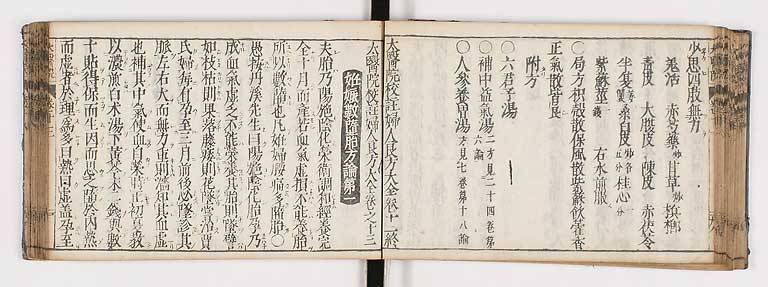 少思四肢無力
羗活　赤芍藥　甘草　檳榔
青皮　大腹皮　陳皮　赤茯苓
半夏　桑白皮　各五分　桂心
紫蘇莖　右水煎服
〇局方枳殻散保風散紫蘇飲藿香
正氣散皆良
附方
〇六君子湯
〇補中益氣湯　二方見二十四卷第六論
〇人參養胃湯　方見七卷第十八論
太醫院校註婦人良方大全卷十二終
太醫院校註婦人良方大全卷之十三
妊娠數墮胎方論第一
夫胎乃陽施陰化榮衛調和經養完
全十月而産若血氣虚損不能養胎
所以數墮也凡妊婦腰痛多墮胎〇
愚按丹溪先生曰陽施陰化胎孕乃
成血氣虚乏不能榮養其胎則墮譬
如枝枯則果落藤痿則花墜嘗治賈
氏婦每有孕至三月前後必墮診其
脉左大而無力重則濇知其血虚
也補其中氣使血自榮時正初夏教
以濃煎白术湯下黃芩末二錢與數
十貼得保而生因而思之墮於内熱
而虚者於理爲多曰熱曰虚盖孕至